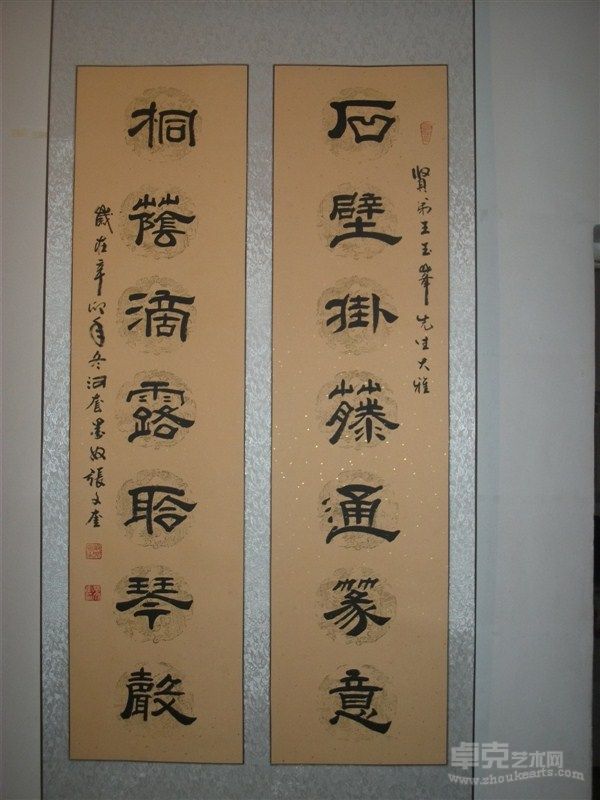 賢弟王玉峯先生大雅
石壁掛藤通篆意
桐蔭滴露聆琴聲
歲在辛卯年冬
張文奎
卓克艺术网
www.zhoukearts.com